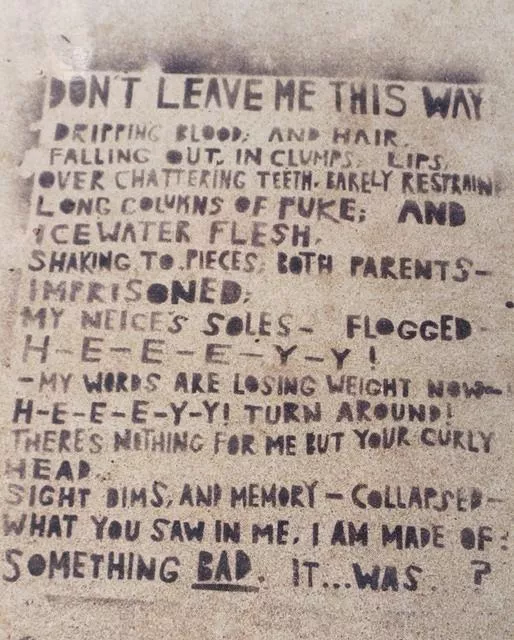 DON'T LEAVE ME THIS WAY
DRIPPING BLOOD; AND HAIR,
FALLING OUT, IN CLUMPS, LIPS,
OVER CHATTERING TEETH. BARELY RESTRAIN
LONG COLUMNS OF PUKE; AND
ICEWATER FLESH,
SHAKING TO PIECES; BOTH PARENTS-
IMPRISONED;
MY NEICE'S SOLES- FLOGGED-
H-E-E-E-Y-Y!
-MY WORDS ARE LOSING WEIGHT NOW-
H-E-E-E-Y-Y! TURN AROUND!
THERE'S NOTHING FOR ME BUT YOUR CURLY
HEAD.
SIGHT DIMS, AND MEMORY - COLLAPSED-
WHAT YOU SAW IN ME, I AM MADE OF:
SOMETHING BAD. IT...WAS. ?